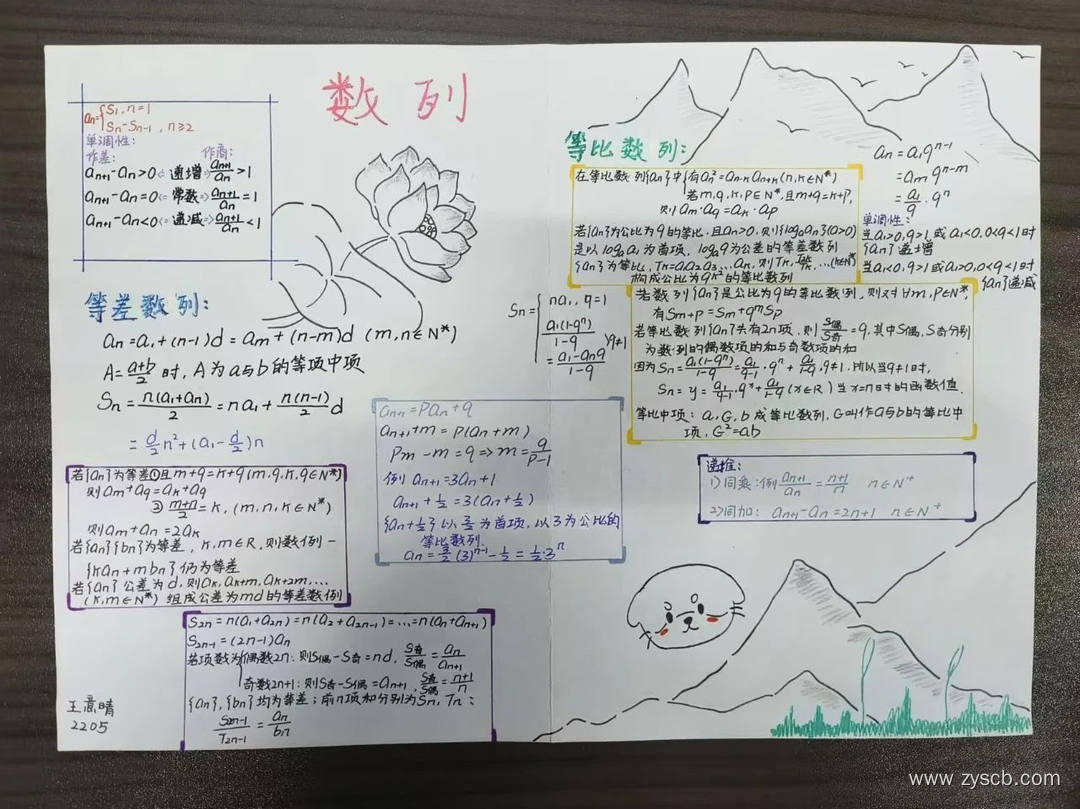 数列
an={S1, n=1
Sn-Sn-1, n≥2
单调性:
作差: 作商:
an+1-an>0⇔递增⇒an+1/an>1
an+1-an=0⇔常数⇒an+1/an=1
an+1-an<0⇔递减⇒an+1/an<1
等差数列:
an=a1+(n-1)d=am+(n-m)d (m,n∈N*)
A=a+b/2时, A为a与b的等项中项
Sn=n(a1+an)/2=na1+n(n-1)/2d
=d/2n²+(a1-d/2)n
若{an}为等差①且m+q=k+q(m,q,k,q∈N*)
则am+aq=ak+aq
②m+n/2=k, (m,n,k∈N*)
则am+an=2ak
若{an}{bn}为等差, k,m∈R, 则数列一
{kan+mbn}仍为等差
若{an}公差为d, 则ak, ak+m, ak+2m, ...
(k,m∈N*) 组成公差为md的等差数列
S2n=n(a1+a2n)=n(a2+a2n-1)=...=n(an+an+1)
S2n-1=(2n-1)an
若项数为偶数2n: 则S偶-S奇=nd, S奇/S偶=an/an+1
奇数2n+1: 则S奇-S偶=an+1, S奇/S偶=n+1/n
{an}, {bn}均为等差; 前n项和分别为Sn, Tn:
S2n-1/T2n-1=an/bn
2205
an+1=pan+q
an+1+m=p(an+m)
pm-m=q⇒m=q/p-1
例 an+1=3an+1
an+1+1/2=3(an+1/2)
{an+1/2}以3/2为首项, 以3为公比的
等比数列.
an=3/2(3)ⁿ⁻¹-1/2=1/2·3ⁿ
等比数列:
在等比数列{an}中{有an²=an-k an+k(n,k∈N*)
若m,q,k,p∈N*, 且m+q=k+p,
则am·aq=ak·ap
若{an}为公比为q的等比, 且an>0, 则{logaan}(a>0)
是以logaa1为首项, logaq为公差的等差数列
构成公比为qk²的等比数列
an=a1qⁿ⁻¹
=amqⁿ⁻ᵐ
=a1/q·qⁿ
单调性:
当a1>0,q>1或a1<0,0<q<1时
{an}递增
当a1<0,q>1或a1>0,0<q<1时
{an}递减
Sn={na1, q=1
a1(1-qⁿ)/1-q
=a1-anq/1-q }q≠1
若数列{an}是公比为q的等比数列, 则对∀m,p∈N*,
有Sm+p=Sm+qᵐSp
若等比数列{an}共有2n项, 则S偶/S奇=q, 其中S偶, S奇分别
为数列的偶数项的和与奇数项的和
因为Sn=a1(1-qⁿ)/1-q=a1/q-1·qⁿ+a1/1-q, q≠1, 所以当q≠1时,
Sn=y=a1/q-1·qˣ+a1/1-q(x∈R)当x=n时的函数值.
等比中项: a, G, b成等比数列, G叫作a与b的等比中
项, G²=ab
递推:
1)同乘: 例an+1/an=n+1/n n∈N⁺
2)同加: an+1-an=2n+1 n∈N⁺
www.zyscb.com